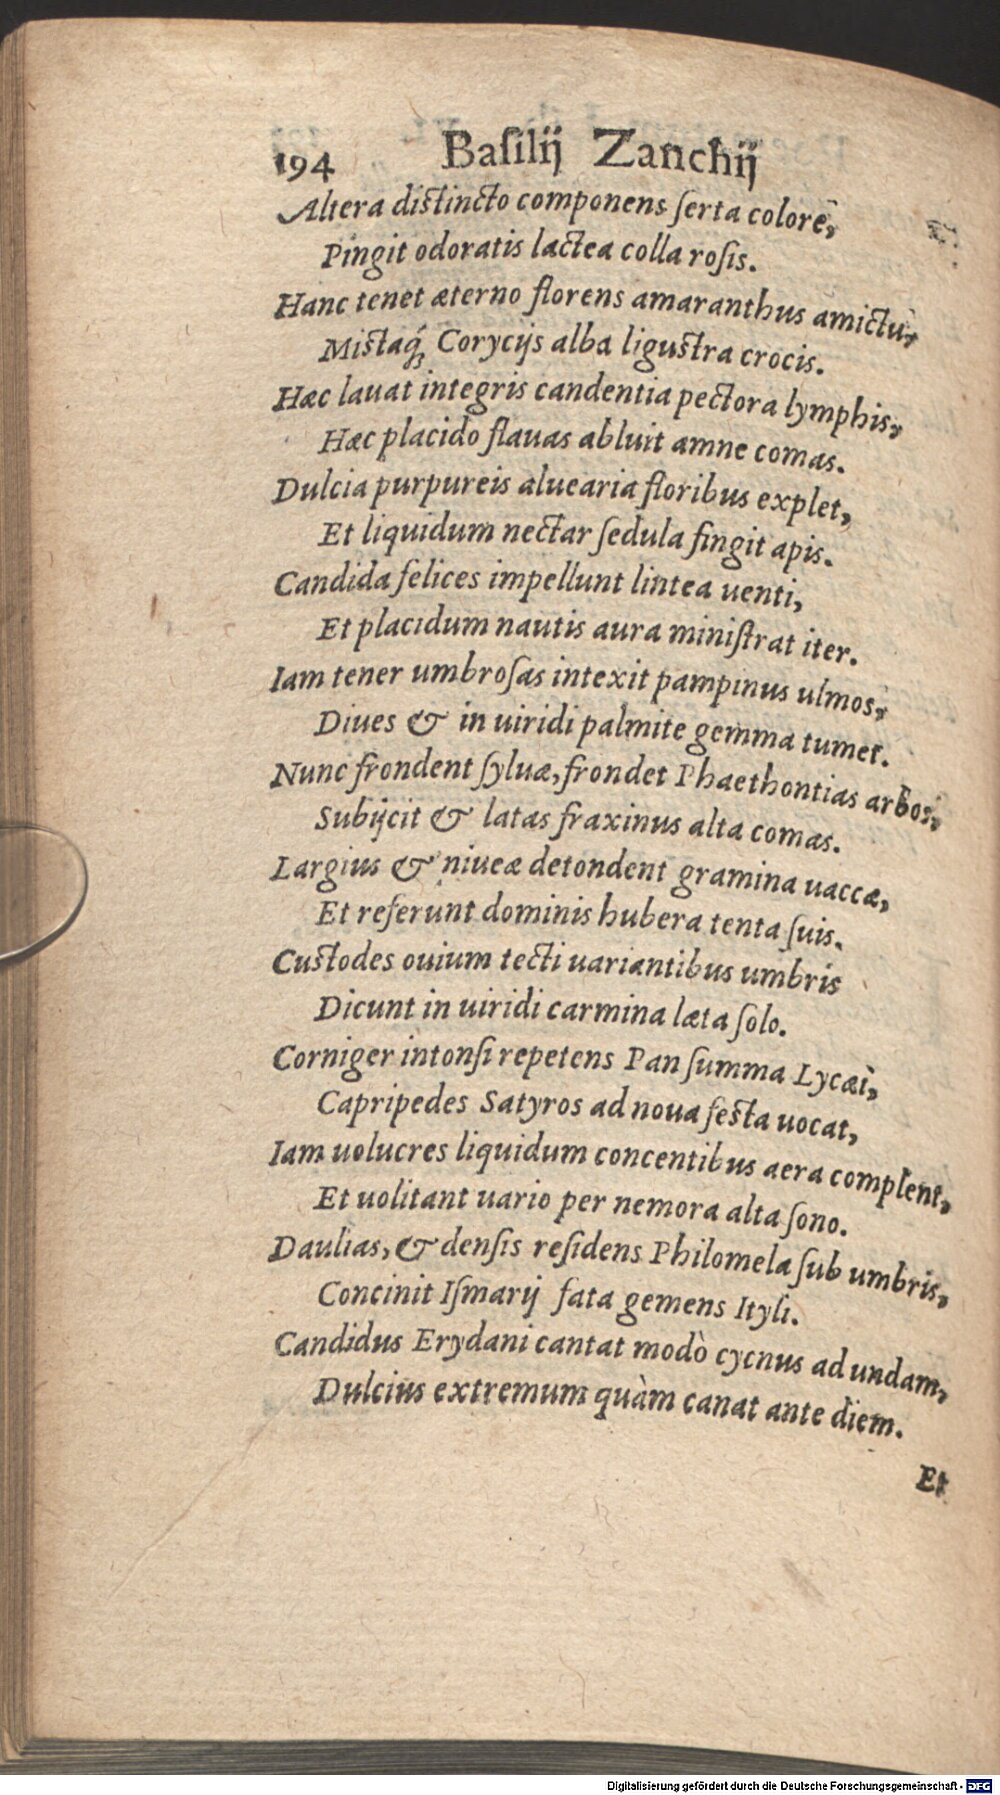 194 Baſilij Zanchij
Altera diſtincto componens ſerta colore,
Pingit odoratis lactea colla roſis.
Hanc tenet æterno florens amaranthus amictu,
Miſtaq́; Corycijs alba liguſtra crocis.
Hæc lauat integris candentia pectora lymphis,
Hæc placido flauas abluit amne comas.
Dulcia purpureis aluearia floribus explet,
Et liquidum nectar ſedula fingit apis.
Candida felices impellunt lintea uenti,
Et placidum nautis aura miniſtrat iter.
Iam tener umbroſas intexit pampinus ulmos,
Diues & in uiridi palmite gemma tumet.
Nunc frondent ſyluæ, frondet Phaethontias arbos,
Subijcit & latas fraxinus alta comas.
Largius & niueæ detondent gramina uaccæ,
Et referunt dominis hubera tenta ſuis.
Cuſtodes ouium tecti uariantibus umbris
Dicunt in uiridi carmina læta ſolo.
Corniger intonſi repetens Pan ſumma Lycæi,
Capripedes Satyros ad noua feſta uocat,
Iam uolucres liquidum concentibus aera complent,
Et uolitant uario per nemora alta ſono.
Daulias, & denſis reſidens Philomela ſub umbris,
Concinit Iſmarij fata gemens Ityli.
Candidus Erydani cantat modò cycnus ad undam,
Dulcius extremum quàm canat ante diem.
Et
Digitalisierung gefördert durch die Deutsche Forschungsgemeinschaft - DFG